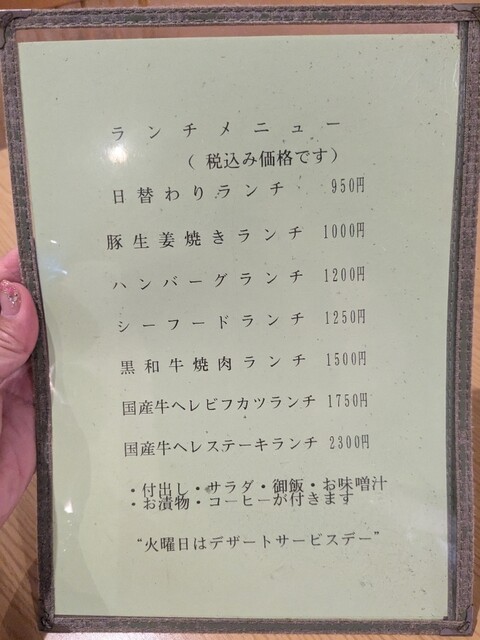 ランチメニュー
(税込み価格です)
日替わりランチ 950円
豚生姜焼きランチ 1000円
ハンバーグランチ 1200円
シーフードランチ 1250円
黒和牛焼肉ランチ 1500円
国産牛ヘレビフカツランチ 1750円
国産牛ヘレステーキランチ 2300円
・付出し・サラダ・御飯・お味噌汁
・お漬物・コーヒーが付きます
“火曜日はデザートサービスデー”